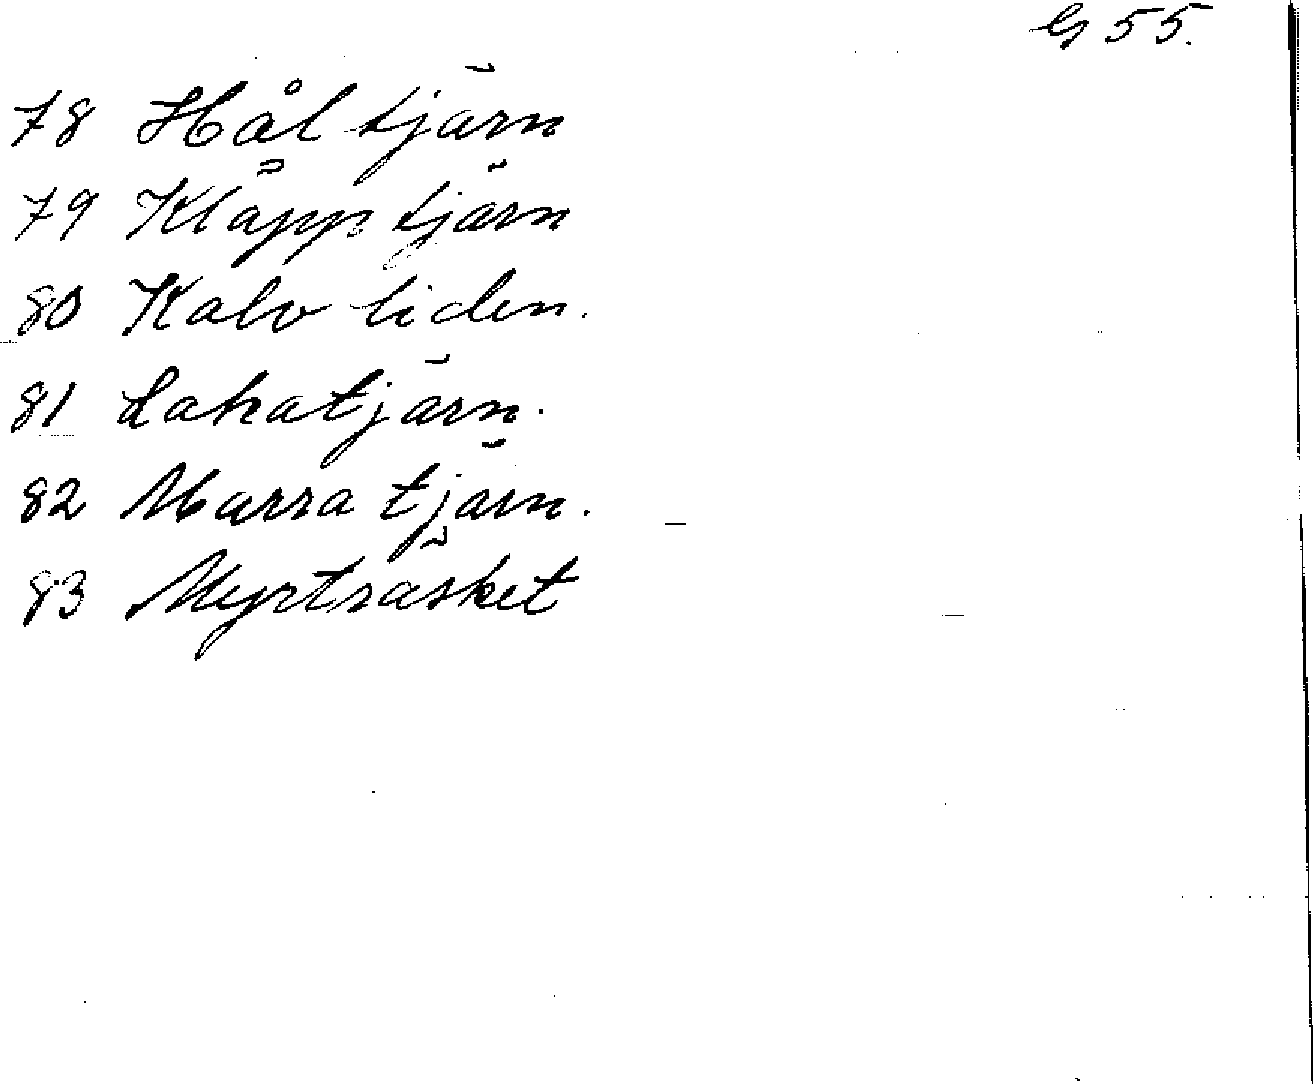 G 55.
78 Håltjärn
79 Kläpptjärn
80 Kalvliden.
81 Lakatjärn.
82 Marratjärn.
83 Myrträsket